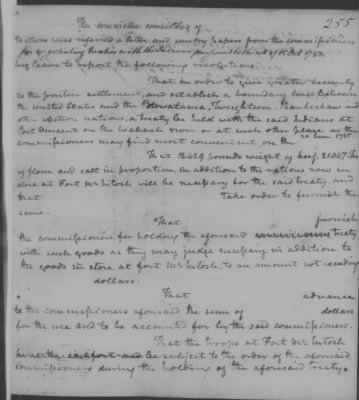 255
The committee consisting of
to whom were referred a letter and sundry papers from the commissioners
for negotiating treaties with the Indians
beg leave to report the following resolutions.
That in order to give greater security
to the frontier settlement, and establish a boundary line between
the United States and the Potowatama, Twightwee, Piankishaw and
other western nations, a treaty be held with the said Indians at
Fort Vincent on the Wabash river or at such other place as the
commissioners may find most convenient on the 20 June 1785.
That 18,424 pounds weight of beef, 21,047 lbs
of flour and salt in proportion, in addition to the rations now in
store at Fort McIntosh will be necessary for the said treaty, and
that Take order to furnish the
same.
That furnish
the commissioners for holding the aforesaid treaty
with such goods as they may judge necessary in addition to
the goods in store at fort McIntosh, to an amount not exceeding
dollars.
That advance
to the commissioners aforesaid the sum of dollars
for the use and to be accounted for by the said commissioners.
That the troops at Fort McIntosh
be subject to the order of the aforesaid
commissioners during the holding of the aforesaid treaty.